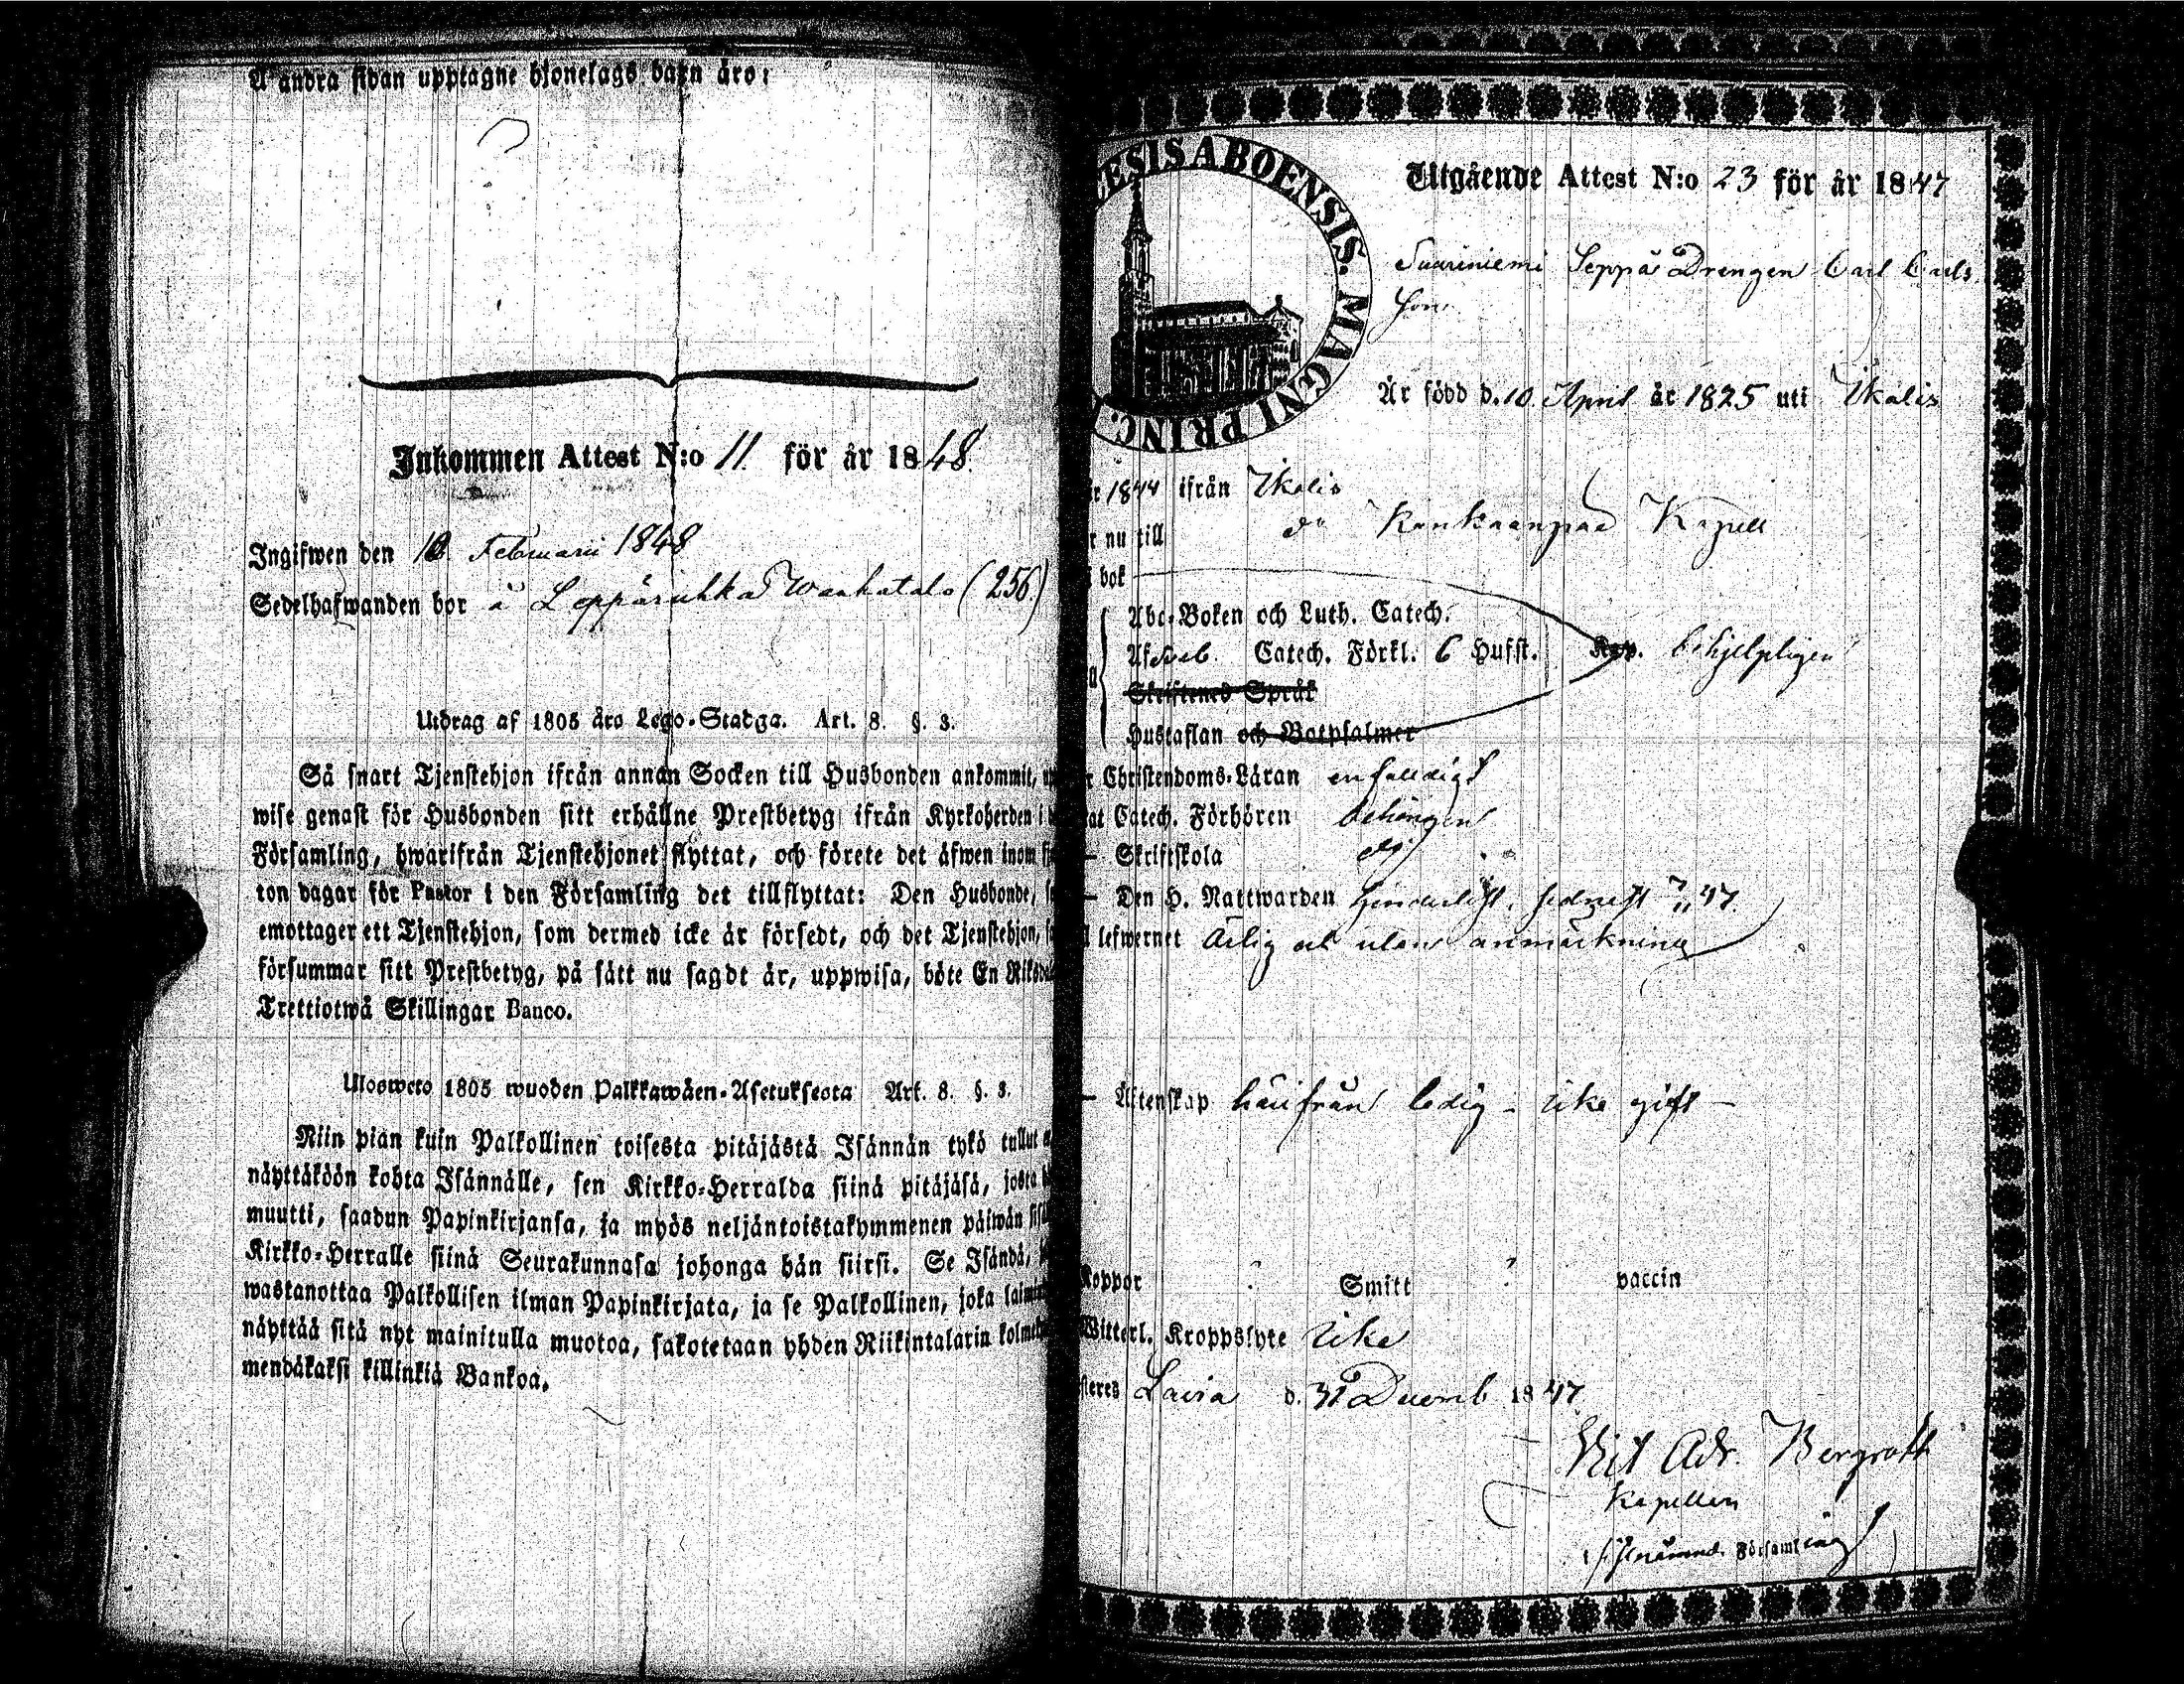 A andra sidan upptagne hjonelags barn äro:
Inkommen Attest N:o 11. för år 1848.
Ingifwen den 10 Februarii 1848
Sedelhafwanden bor å Leppäruhka Wanhatalo (256.)
Utdrag af 1805 års Lego-Stadga. Art. 8. §. 3.
Så snart Tjenstehjon ifrån annan Socken till Husbonden ankommit,
wise genast för Husbonden sitt erhållne Prestbetyg ifrån Kyrkoherden i
Församling, hwarifrån Tjenstehjonet flyttat, och förete det äfwen inom
ton dagar för Pastor i den Församling det tillflyttat: Den Husbonde,
emottager ett Tjenstehjon, som dermed icke är försedt, och det Tjenstehjon,
försummar sitt Prestbetyg, på sätt nu sagdt är, uppwisa, böte En
Trettiotwå Skillingar Banco.
Ulosweto 1805 wuoden Palkkawäen-Asetuksesta Art. 8. §. 3.
Niin pian kuin Palkollinen toisesta pitäjästä Isännän tykö tullut
näyttäköön kohta Isännälle, sen Kirkko-Herralda siinä pitäjäsä, josta
muutti, saadun Papinkirjansa, ja myös neljäntoistakymmenen päiwän
Kirkko-Herralle siinä Seurakunnasa johonga hän siirsi. Se Isändä,
wastanottaa Palkollisen ilman Papinkirjata, ja se Palkollinen, joka
näyttää sitä nyt mainitulla muotoa, sakotetaan yhden Riikintalarin
mendäkaksi killinkiä Bankoa.
ESIS ABOENSIS. MAGNI PRINC.
Utgående Attest N:o 23 för år 1847
Suariniemi Seppä Drengen Carl Carls
son
Är född d. 10 April år 1825 uti Ikalis
1844 ifrån Ikalis
nu till do Kankaanpää Kapell
bok
Abc-Boken och Luth. Catech.
Catech. Förkl. 6 Hufst. behjelpligen
Skriftenes Språk
Hustaflan och Botpsalmer
Christendoms-Läran enfaldigt
Catech. Förhören behörigen
— Skriftskola
— Den H. Nattwarden sednast 47.
lefwernet Ärlig och utan anmärkning
— Äktenskap härifrån ledig – icke gift –
Koppor ? Smitt ? vaccin
Witterl. Kroppslyte icke
Lavia d. 31 Decemb 1847
Adr. Bergroth
Kapellan
Församling